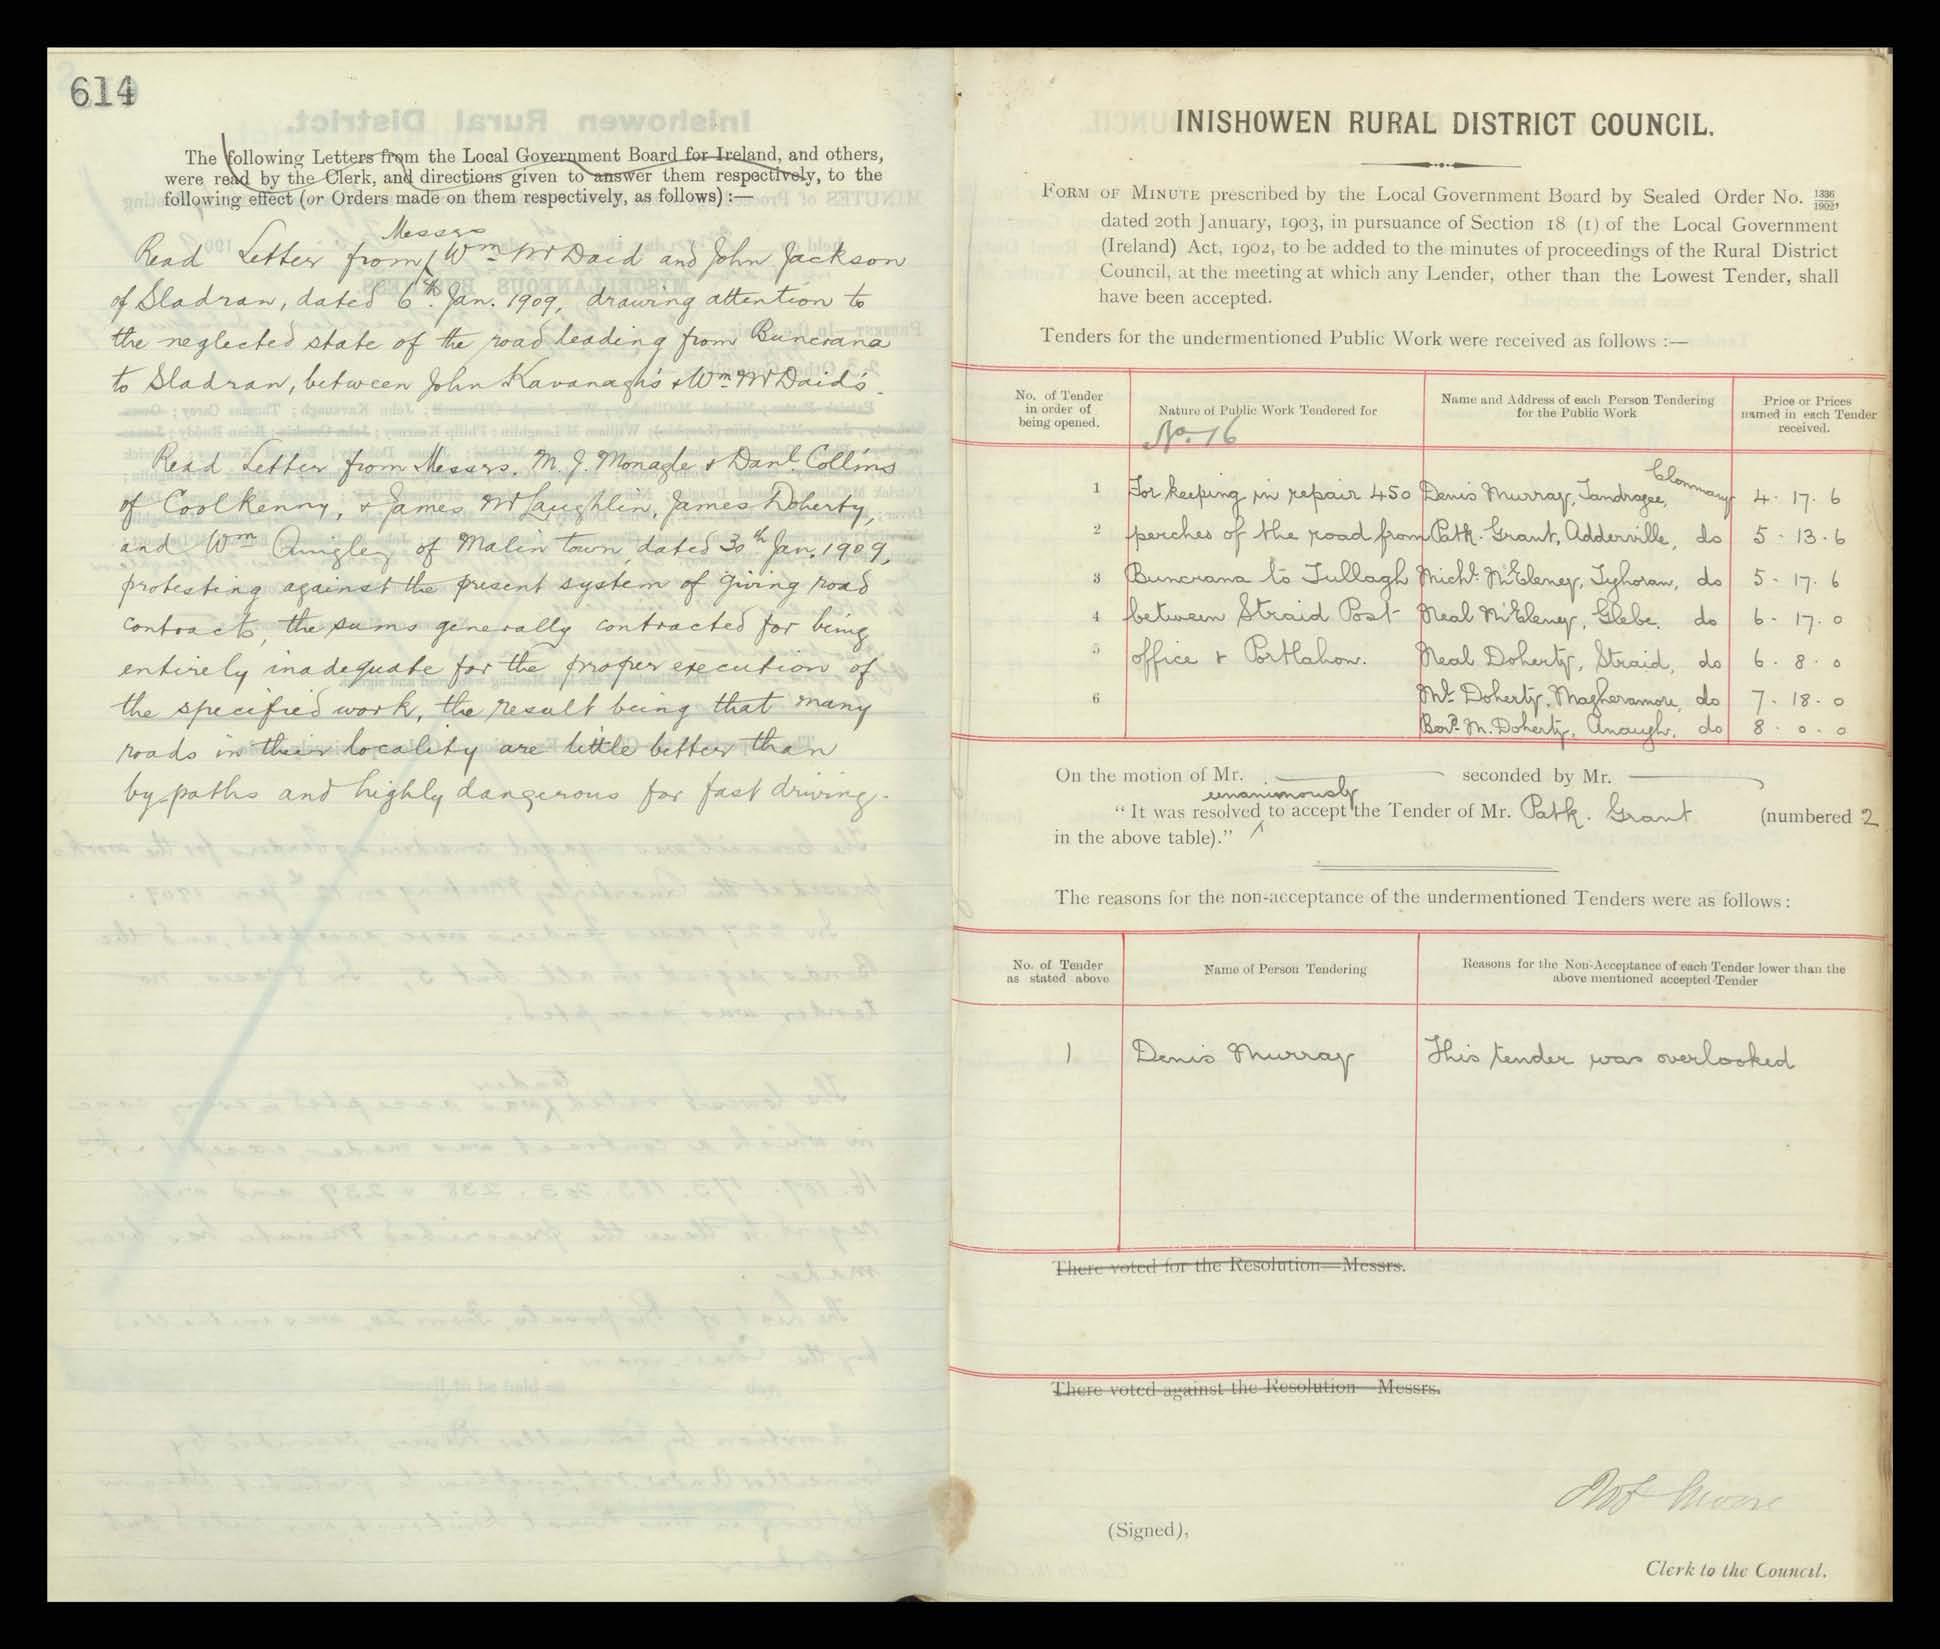 614
The following Letters from the Local Government Board for Ireland, and others,
were read by the Clerk, and directions given to answer them respectively, to the
following effect (or Orders made on them respectively, as follows) :—
Messrs
Read Letter from Wm McDaid and John Jackson
of Sladran, dated 6th Jan. 1909, drawing attention to
the neglected state of the road leading from Buncrana
to Sladran, between John Kavanagh's & Wm McDaid's.
Read Letter from Messrs. M. J. Monagle & Danl. Collins
of Coolkenny, & James McLaughlin, James Doherty,
and Wm Quigley of Malin town, dated 30th Jan. 1909,
protesting against the present system of giving road
contracts, the sums generally contracted for being
entirely inadequate for the proper execution of
the specified work, the result being that many
roads in their locality are little better than
by paths and highly dangerous for fast driving.
INISHOWEN RURAL DISTRICT COUNCIL.
FORM OF MINUTE prescribed by the Local Government Board by Sealed Order No. 1336/1902,
dated 20th January, 1903, in pursuance of Section 18 (1) of the Local Government
(Ireland) Act, 1902, to be added to the minutes of proceedings of the Rural District
Council, at the meeting at which any Lender, other than the Lowest Tender, shall
have been accepted.
Tenders for the undermentioned Public Work were received as follows :—
No. of Tender in order of being opened. Nature of Public Work Tendered for Name and Address of each Person Tendering for the Public Work Price or Prices named in each Tender received.
No. 16
Clonmany
1 For keeping in repair 450 Denis Murray, Tandragee, 4 . 17 . 6
2 perches of the road from Patk. Grant, Adderville, do 5 . 13 . 6
3 Buncrana to Tullagh Michl. McEleney, Tyhoran, do 5 . 17 . 6
4 between Straid Post Neal McEleney, Glebe, do 6 . 17 . 0
5 office & Portlahon. Neal Doherty, Straid, do 6 . 8 . 0
6 Ml. Doherty, Magheramore, do 7 . 18 . 0
M. Doherty, Anaugh, do 8 . 0 . 0
On the motion of Mr. — seconded by Mr. —
unanimously
“ It was resolved to accept the Tender of Mr. Patk. Grant (numbered 2
in the above table).”
The reasons for the non-acceptance of the undermentioned Tenders were as follows :
No. of Tender as stated above Name of Person Tendering Reasons for the Non-Acceptance of each Tender lower than the above mentioned accepted Tender
1 Denis Murray This tender was overlooked
There voted for the Resolution—Messrs.
There voted against the Resolution—Messrs.
(Signed),
Clerk to the Council.